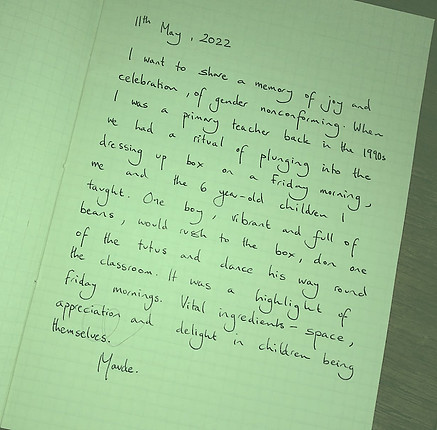 11th May, 2022
I want to share a memory of joy and
celebration, of gender nonconforming. When
I was a primary teacher back in the 1990s
we had a ritual of plunging into the
dressing up box on a Friday morning,
me and the 6 year-old children I
taught. One boy, vibrant and full of
beans, would rush to the box, don one
of the tutus and dance his way round
the classroom. It was a highlight of
Friday mornings. Vital ingredients - space,
appreciation and delight in children being
themselves.
Maude.